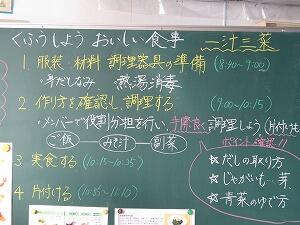 くふうしよう おいしい食事 一汁三菜
1. 服装・材料 調理器具の準備 (8:40~9:00)
・身だしなみ 熱湯消毒
2. 作り方を確認し、調理する (9:00~10:15)
・メンバーで役割分担を行い、手際良く調理しよう(片付けも
ご飯 みそ汁 副菜
ポイント確認!!
☆だしの取り方
☆じゃがいも…芽
☆青菜のゆで方
3. 実食する (10:15~10:35)
4. 片付ける